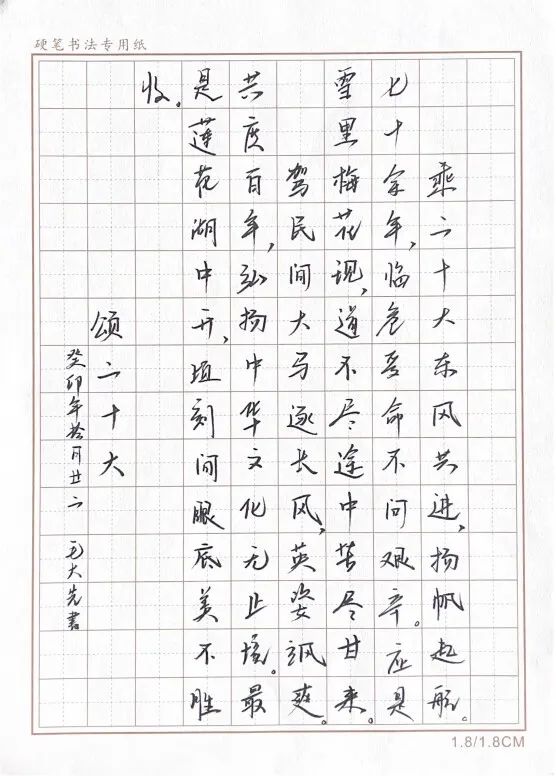 硬笔书法专用纸
乘二十大东风共进,扬帆起航。
七十余年,临危受命不问艰辛。应是
雪里梅花现,道不尽途中苦尽甘来。
驾民间大马逐长风,英姿飒爽。
共度百年,弘扬中华文化无止境。最
是莲花湖中开,顷刻间眼底美不胜
收。
颂二十大
癸卯年拾月廿二 毛大先書
1.8/1.8CM